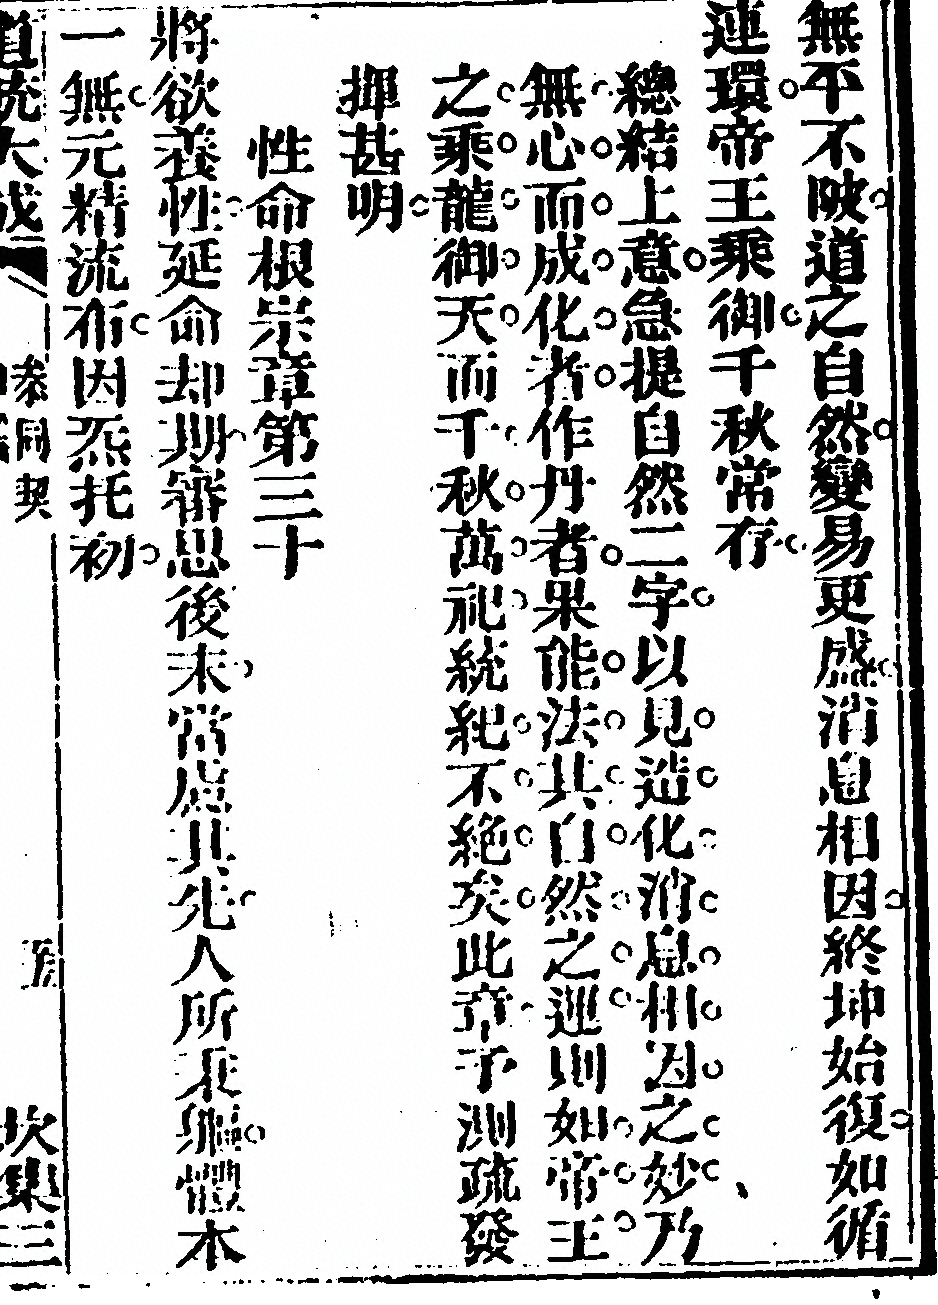 無平不陂道之自然變易更盛消息相因終坤始復如循
連環帝王乘御千秋常存
總結上意急提自然二字以見造化消息相因之妙乃
無心而成化者作丹者果能法其自然之運則如帝王
之乘龍御天而千秋萬祀統紀不絕矣此章予測疏發
揮甚明
性命根宗章第三十
將欲養性延命却期審思後末常慮其先人所秉軀體本
一無元精流布因炁托初
道統大成
參同契
五
坎集三